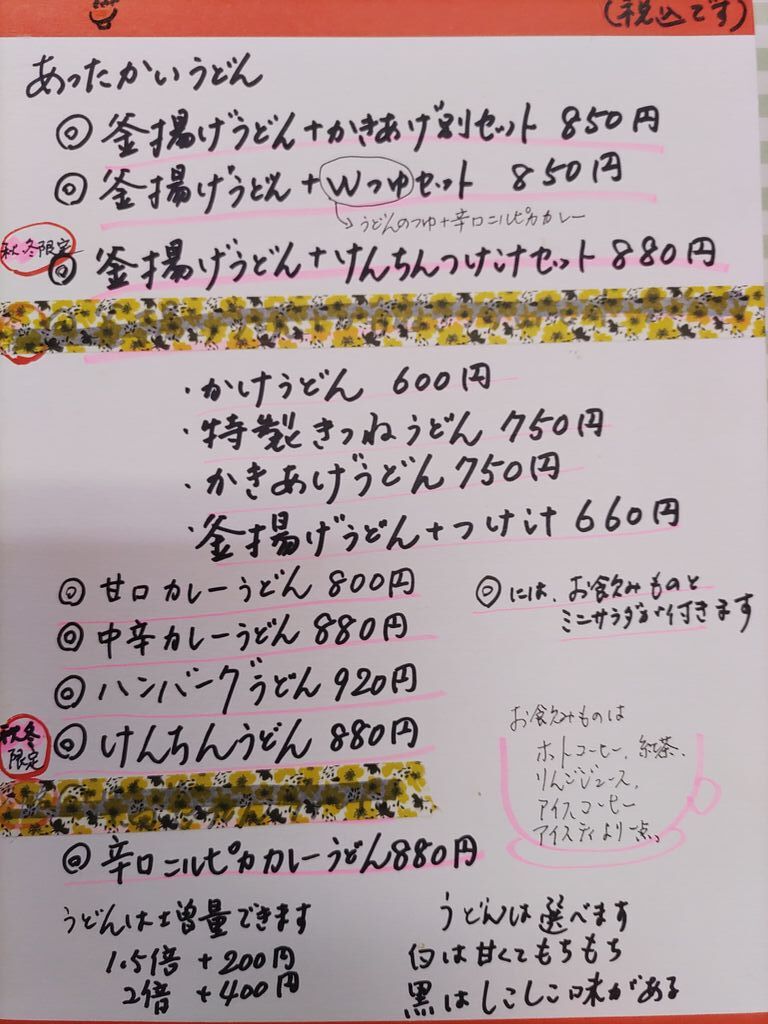 (税込です)
あったかいうどん
◎ 釜揚げうどん+かきあげ別セット 850円
◎ 釜揚げうどん+Wつゆセット 850円
↳うどんのつゆ+辛口ニルピカカレー
秋冬限定
◎ 釜揚げうどん+けんちんつけ汁セット 880円
・かけうどん 600円
・特製きつねうどん 750円
・かきあげうどん 750円
・釜揚げうどん+つけ汁 660円
◎ 甘口カレーうどん 800円
◎ 中辛カレーうどん 880円
◎ ハンバーグうどん 920円
秋冬
限定
◎ けんちんうどん 880円
◎には、お飲みものと
ミニサラダが付きます
お飲みものは
ホットコーヒー、紅茶、
りんごジュース、
アイスコーヒー
アイスティより一点。
◎ 辛口ニルピカカレーうどん880円
うどんは増量できます
1.5倍 +200円
2倍 +400円
うどんは選べます
白は甘くてもちもち
黒はしこしこ味がある